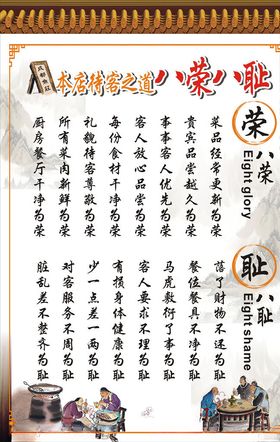 本店待客之道 八荣八耻
荣
八荣
Eight glory
菜品经常更新为荣
贵宾品尝越久为荣
事事客人优先为荣
客人放心品尝为荣
每份食材干净为荣
礼貌待客尊敬为荣
所有菜肉新鲜为荣
厨房餐厅干净为荣
耻
八耻
Eight shame
落了财物不还为耻
餐位餐具不净为耻
马虎敷衍了事为耻
客人要求不理为耻
有损身体健康为耻
少一点差一两为耻
对客服务不周为耻
脏乱差不整齐为耻